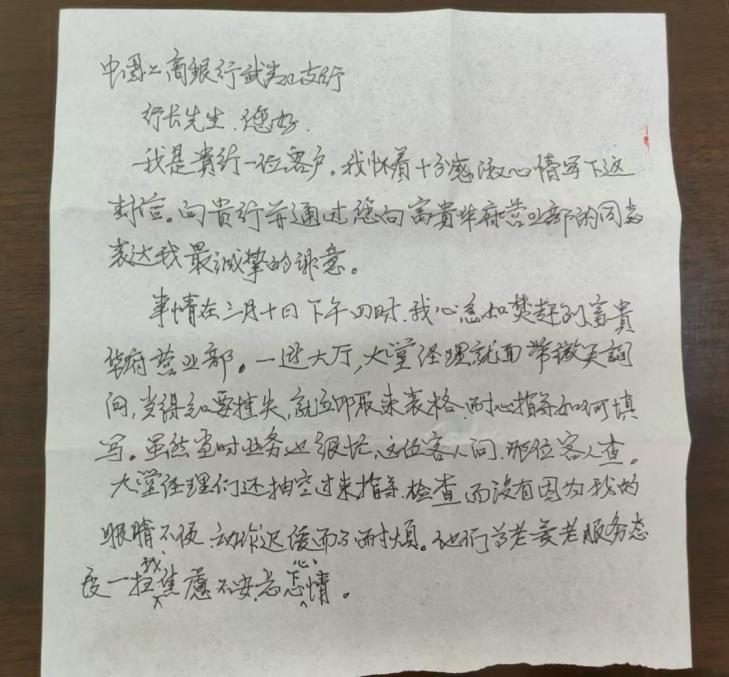 中国工商銀行武生江支行
行长先生.您好.
我是貴行一位客户。我怀着十分感激心情写下这
封信。向贵行并通过您向富貴华府营业部的同志
表达我最诚挚的谢意。
事情在三月十日下午四时.我心急如焚赶到富貴
华府营业部。一进大厅,大堂经理就面带微笑詢
问,当得知要挂失,就立即取来表格.耐心指导如何填
写。虽然当时业务也很忙、这位客人问.那位客人查。
大堂经理们还抽空过来指导.检查.而没有因为我的
眼睛不便.动作迟缓而不耐烦。他们尊老爱老服务态
度一扫我焦虑不安.忐忑心情。